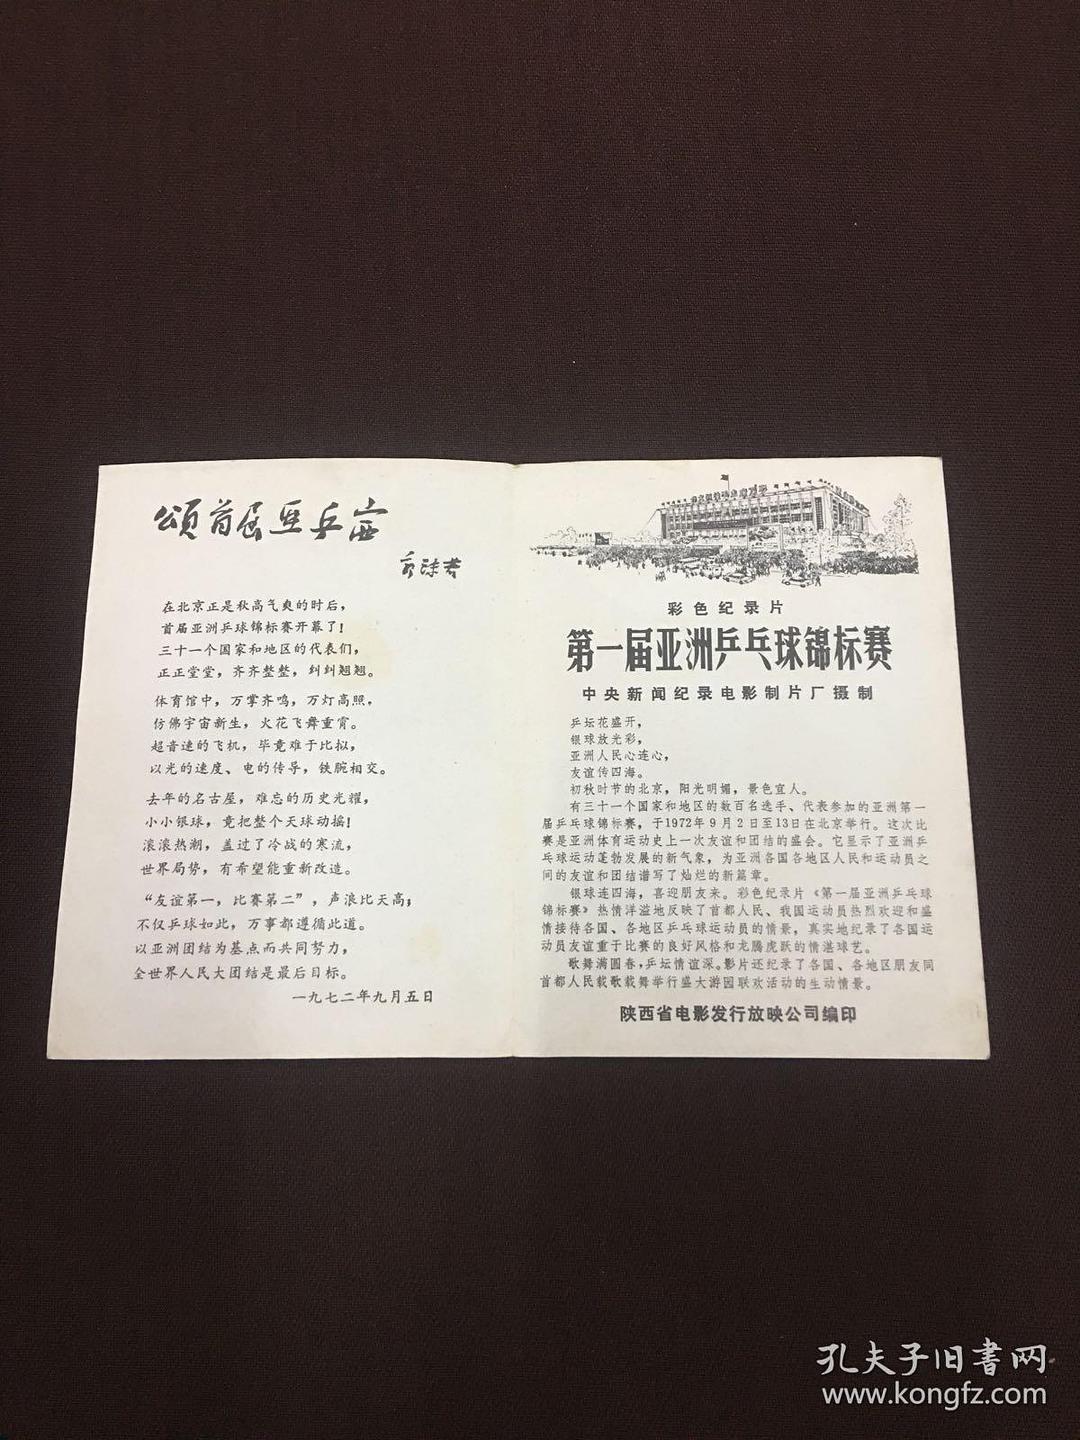 頌首届亚乒赛
郭沫若
在北京正是秋高气爽的时后，
首届亚洲乒球锦标赛开幕了！
三十一个国家和地区的代表们，
正正堂堂，齐齐整整，纠纠翘翘。
体育馆中，万掌齐鸣，万灯高照，
仿佛宇宙新生，火花飞舞重霄。
超音速的飞机，毕竟难于比拟，
以光的速度、电的传导，铁腕相交。
去年的名古屋，难忘的历史光耀，
小小银球，竟把整个天球动摇！
滚滚热潮，盖过了冷战的寒流，
世界局势，有希望能重新改造。
“友谊第一，比赛第二”，声浪比天高；
不仅乒球如此，万事都遵循此道。
以亚洲团结为基点而共同努力，
全世界人民大团结是最后目标。
一九七二年九月五日
彩色纪录片
第一届亚洲乒乓球锦标赛
中央新闻纪录电影制片厂摄制
乒坛花盛开，
银球放光彩，
亚洲人民心连心，
友谊传四海。
初秋时节的北京，阳光明媚，景色宜人。
有三十一个国家和地区的数百名选手、代表参加的亚洲第一
届乒乓球锦标赛，于1972年9月2日至13日在北京举行。这次比
赛是亚洲体育运动史上一次友谊和团结的盛会。它显示了亚洲乒
乓球运动蓬勃发展的新气象，为亚洲各国各地区人民和运动员之
间的友谊和团结谱写了灿烂的新篇章。
银球连四海，喜迎朋友来。彩色纪录片《第一届亚洲乒乓球
锦标赛》热情洋溢地反映了首都人民、我国运动员热烈欢迎和盛
情接待各国、各地区乒乓球运动员的情景，真实地纪录了各国运
动员友谊重于比赛的良好风格和龙腾虎跃的情湛球艺。
歌舞满园春，乒坛情谊深。影片还纪录了各国、各地区朋友同
首都人民载歌载舞举行盛大游园联欢活动的生动情景。
陕西省电影发行放映公司编印
孔夫子旧書网
www.kongfz.com